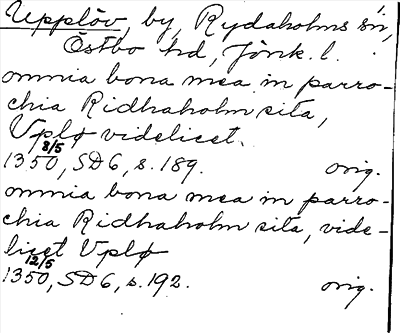 Upplöv, by, Rydaholms sn,
Östbo hd, Jönk. l.
omnia bona mea in parro-
chia Ridhaholm sita,
Vplø videlicet.
1350 8/5, SD6, s. 189. orig.
omnia bona mea in parro-
chia Ridhaholm sita, vide-
licet Vplø
1350 12/5, SD6, s. 192. orig.